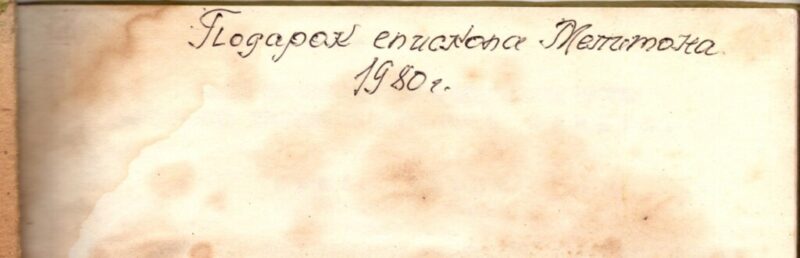 Подарок епископа Мелитона
1980 г.